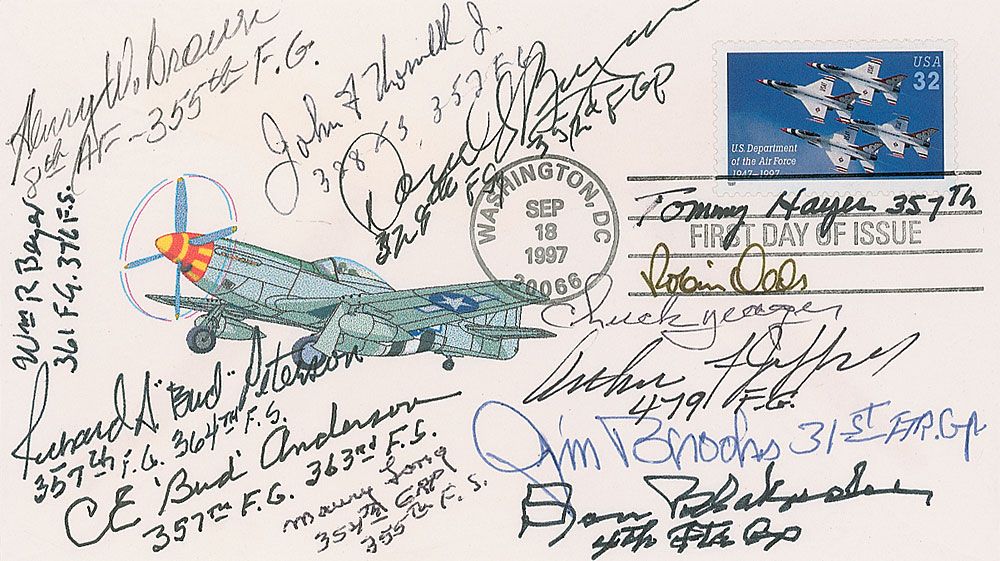 Henry W. Brown
8th AF - 355th F.G.
John F Thornell Jr.
328 FS 352 FG
328th F.S.
352nd F GP
USA
32
U.S. Department
of the Air Force
1947-1997
WASHINGTON, DC
SEP
18
1997
20066
Tommy Hayes 357th
FIRST DAY OF ISSUE
Robin Olds
Chuck Yeager
Arthur F Jeffrey
479 F.G.
Jim Brooks 31st FTR.GP
4th Ftr Gp
Wm R Beyer
361 F.G. 376 F.S.
Richard A "Bud" Peterson
357th F.G. 364TH F.S.
C.E. 'Bud' Anderson
357TH F.G. 363rd F.S.
Maury Long
354th GRP
355th F.S.